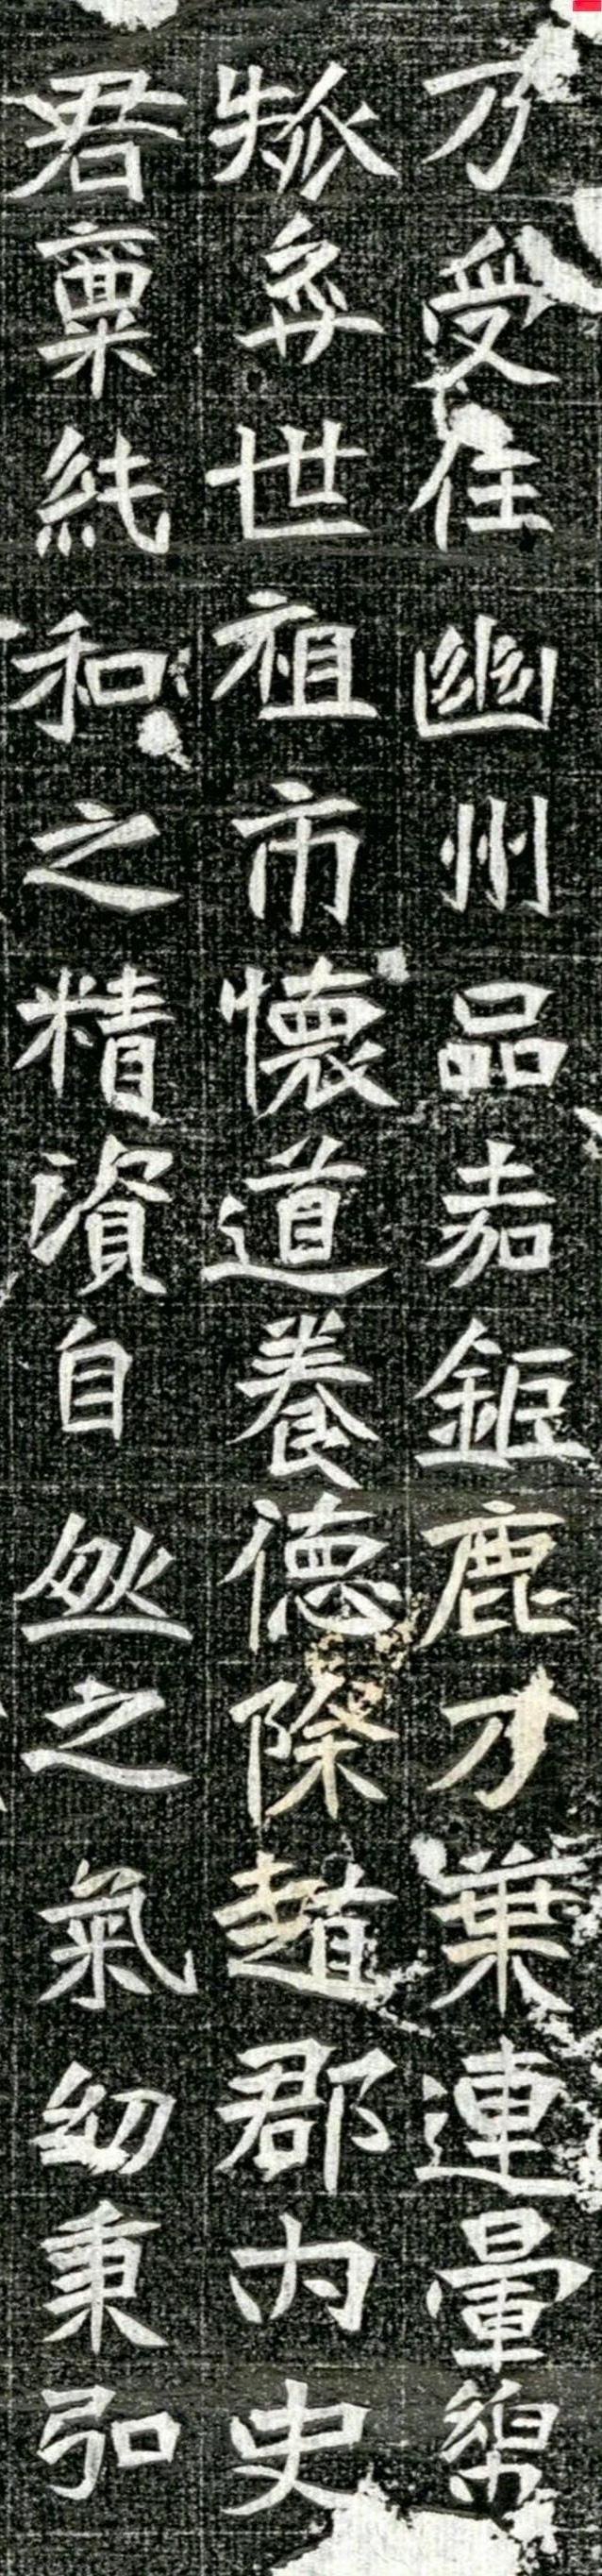 乃受任幽州品嘉鉅鹿才葉連暈綿
弈世祖市懷道養德除趙郡内史
君稟純和之精資自然之氣幼秉弘